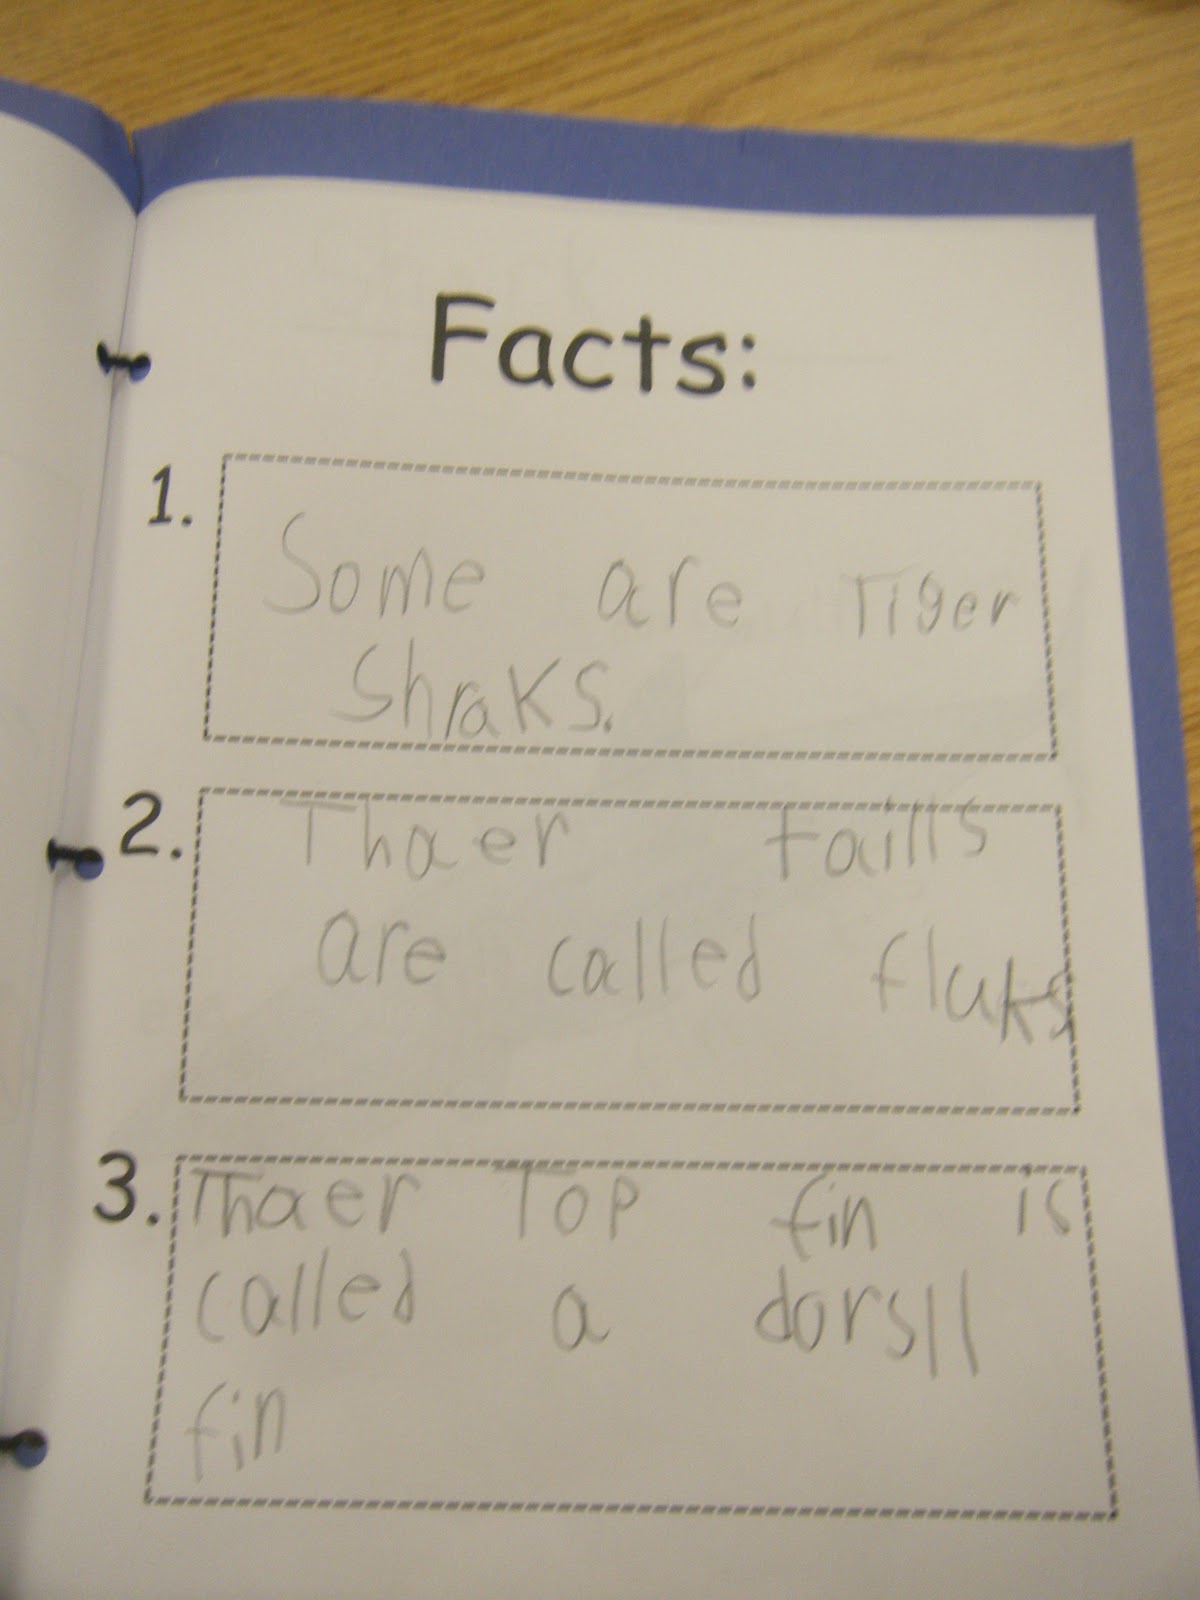 Facts:
1.
Some are Tiger
Shraks.
2.
Thaer taills
are called fluks
3.
Thaer Top fin is
called a dorsll
fin